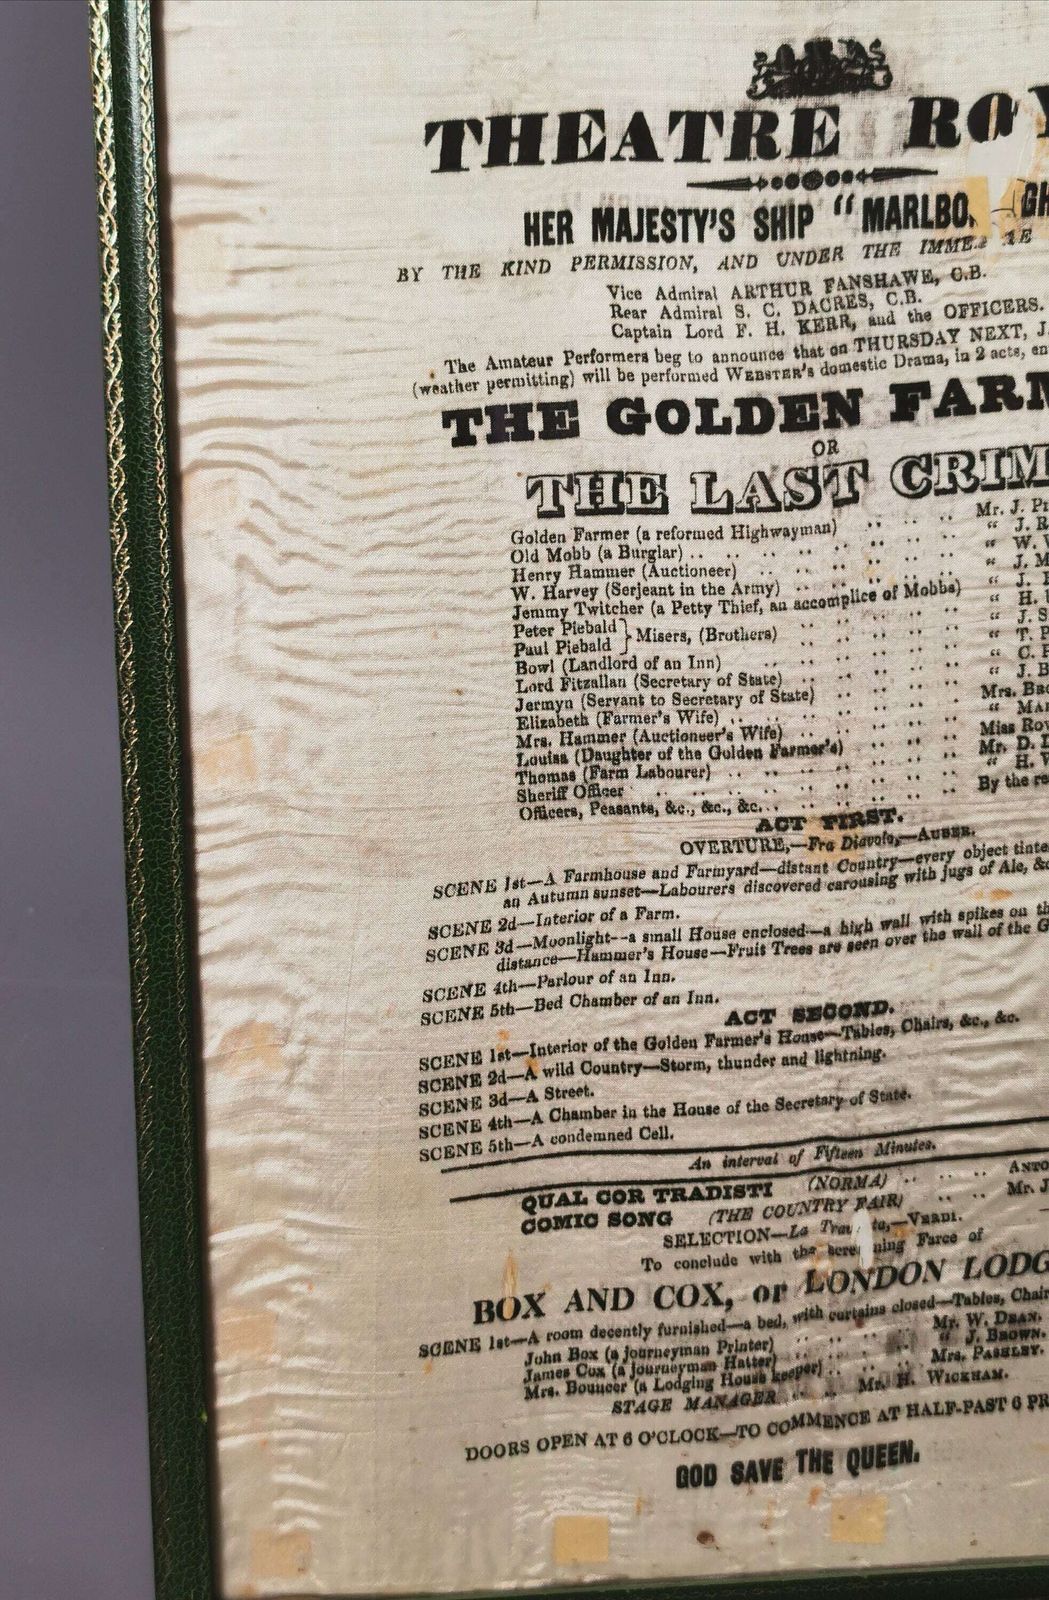 THEATRE ROY
HER MAJESTY'S SHIP "MARLBO GH
BY THE KIND PERMISSION, AND UNDER THE IMME
Vice Admiral ARTHUR FANSHAWE, C.B.
Rear Admiral S. C. DACRES, C.B.
Captain Lord F. H. KERR, and the OFFICERS.
The Amateur Performers beg to announce that on THURSDAY NEXT, J
(weather permitting) will be performed WEBSTER'S domestic Drama, in 2 acts, en
THE GOLDEN FARM
OR
THE LAST CRIM
Golden Farmer (a reformed Highwayman) .. .. .. Mr. J. P
Old Mobb (a Burglar) .. .. .. .. .. " J. R
Henry Hammer (Auctioneer) .. .. .. .. " W.
W. Harvey (Serjeant in the Army) .. .. .. .. " J. M
Jemmy Twitcher (a Petty Thief, an accomplice of Mobbs) " J.
Peter Piebald } Misers, (Brothers) .. .. .. " H.
Paul Piebald " J. S
Bowl (Landlord of an Inn) .. .. .. .. " T. P
Lord Fitzallan (Secretary of State) .. .. .. " C.
Jermyn (Servant to Secretary of State) .. .. .. " J. B
Elizabeth (Farmer's Wife) .. .. .. .. Mrs. BRO
Mrs. Hammer (Auctioneer's Wife) .. .. .. " MA
Louisa (Daughter of the Golden Farmer's) .. .. Miss ROW
Thomas (Farm Labourer) .. .. .. .. Mr. D. L
Sheriff Officer .. .. .. .. " H. W
Officers, Peasants, &c., &c., &c... .. .. .. By the re
ACT FIRST.
OVERTURE,—Fra Diavolo,—AUBER.
SCENE 1st—A Farmhouse and Farmyard—distant Country—every object tinte
an Autumn sunset—Labourers discovered carousing with jugs of Ale, &c
SCENE 2d—Interior of a Farm.
SCENE 3d—Moonlight--a small House enclosed—a high wall with spikes on th
distance—Hammer's House—Fruit Trees are seen over the wall of the G
SCENE 4th—Parlour of an Inn.
SCENE 5th—Bed Chamber of an Inn.
ACT SECOND.
SCENE 1st—Interior of the Golden Farmer's House—Tables, Chairs, &c., &c.
SCENE 2d—A wild Country—Storm, thunder and lightning.
SCENE 3d—A Street.
SCENE 4th—A Chamber in the House of the Secretary of State.
SCENE 5th—A condemned Cell.
An interval of Fifteen Minutes.
QUAL COR TRADISTI (NORMA) .. .. .. ANTO
COMIC SONG (THE COUNTRY FAIR) .. .. Mr. J
SELECTION—La Trav ta,—VERDI.
To conclude with the Farce of
BOX AND COX, or LONDON LODG
SCENE 1st—A room decently furnished—a bed, with curtains closed—Tables, Chair
John Box (a journeyman Printer) .. .. .. Mr. W. DEAN.
James Cox (a journeyman Hatter) .. .. .. " J. BROWN.
Mrs. Bouncer (a Lodging House keeper) .. .. Mrs. PASHLEY.
STAGE MANAGER .. .. Mr. H. WICKHAM.
DOORS OPEN AT 6 O'CLOCK—TO COMMENCE AT HALF-PAST 6 PR
GOD SAVE THE QUEEN.